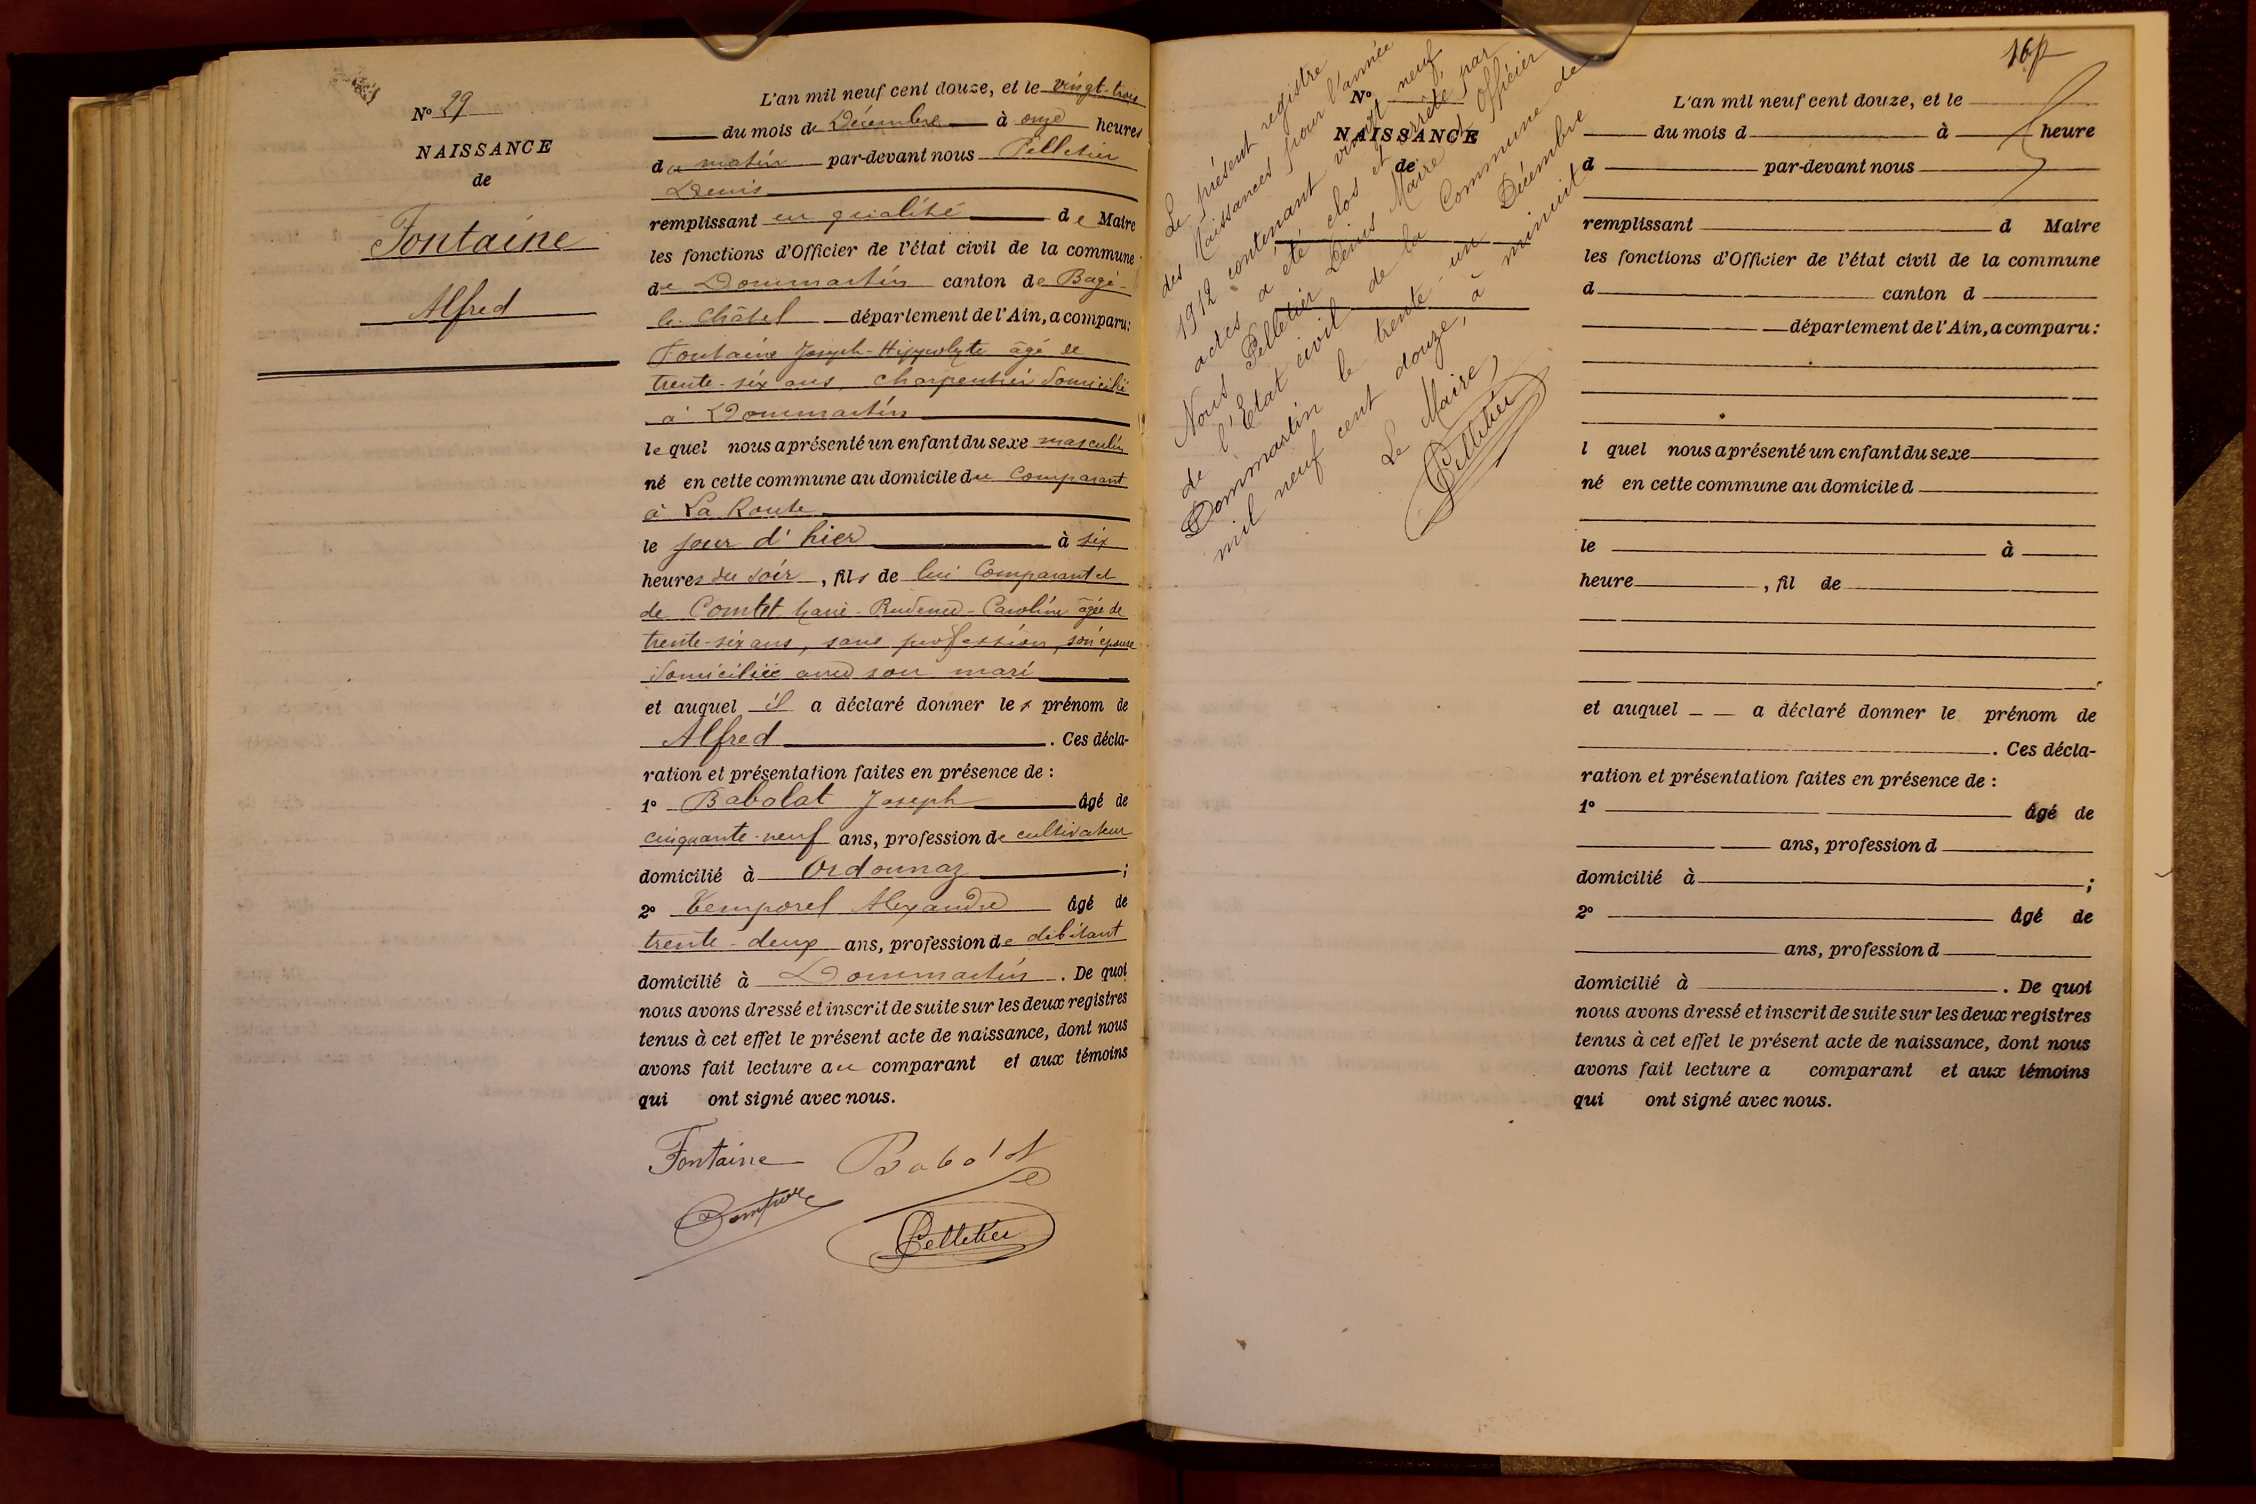 N° 29
NAISSANCE
de
Fontaine
Alfred
L'an mil neuf cent douze, et le vingt-trois
du mois de Décembre à onze heures
du matin par-devant nous Pelletier
Denis
remplissant en qualité de Maire
les fonctions d'Officier de l'état civil de la commune
de Dommartin canton de Bagé-
le-Châtel département de l'Ain, a comparu:
Fontaine Joseph-Hippolyte âgé de
trente-six ans, charpentier domicilié
à Dommartin
lequel nous a présenté un enfant du sexe masculin
né en cette commune au domicile du Comparant
à La Route
le jour d'hier à six
heures du soir, fils de lui Comparant et
de Comtet Marie- -Caroline âgée de
trente-six ans, sans profession, son épouse
domiciliée avec son mari
et auquel il a déclaré donner le prénom de
Alfred. Ces décla-
ration et présentation faites en présence de :
1° Babolat Joseph âgé de
cinquante-neuf ans, profession de cultivateur
domicilié à Ordonnaz ;
2° Temporel Alexandre âgé de
trente-deux ans, profession de débitant
domicilié à Dommartin. De quoi
nous avons dressé et inscrit de suite sur les deux registres
tenus à cet effet le présent acte de naissance, dont nous
avons fait lecture au comparant et aux témoins
qui ont signé avec nous.
Fontaine Babolat
Temporel
Pelletier
Le présent registre
des Naissances pour l'année
1912 contenant vingt neuf
actes a été clos et arrêté par
Nous Pelletier Denis Maire Officier
de l'Etat civil de la Commune de
Dommartin le trente-un Décembre
mil neuf cent douze, à minuit
Le Maire,
Pelletier
N°
NAISSANCE
de
L'an mil neuf cent douze, et le
du mois d à heure
d par-devant nous
remplissant d Maire
les fonctions d'Officier de l'état civil de la commune
d canton d
département de l'Ain, a comparu:
l quel nous a présenté un enfant du sexe
né en cette commune au domicile d
le à
heure , fil de
et auquel a déclaré donner le prénom de
. Ces décla-
ration et présentation faites en présence de :
1° âgé de
ans, profession d
domicilié à ;
2° âgé de
ans, profession d
domicilié à . De quoi
nous avons dressé et inscrit de suite sur les deux registres
tenus à cet effet le présent acte de naissance, dont nous
avons fait lecture a comparant et aux témoins
qui ont signé avec nous.